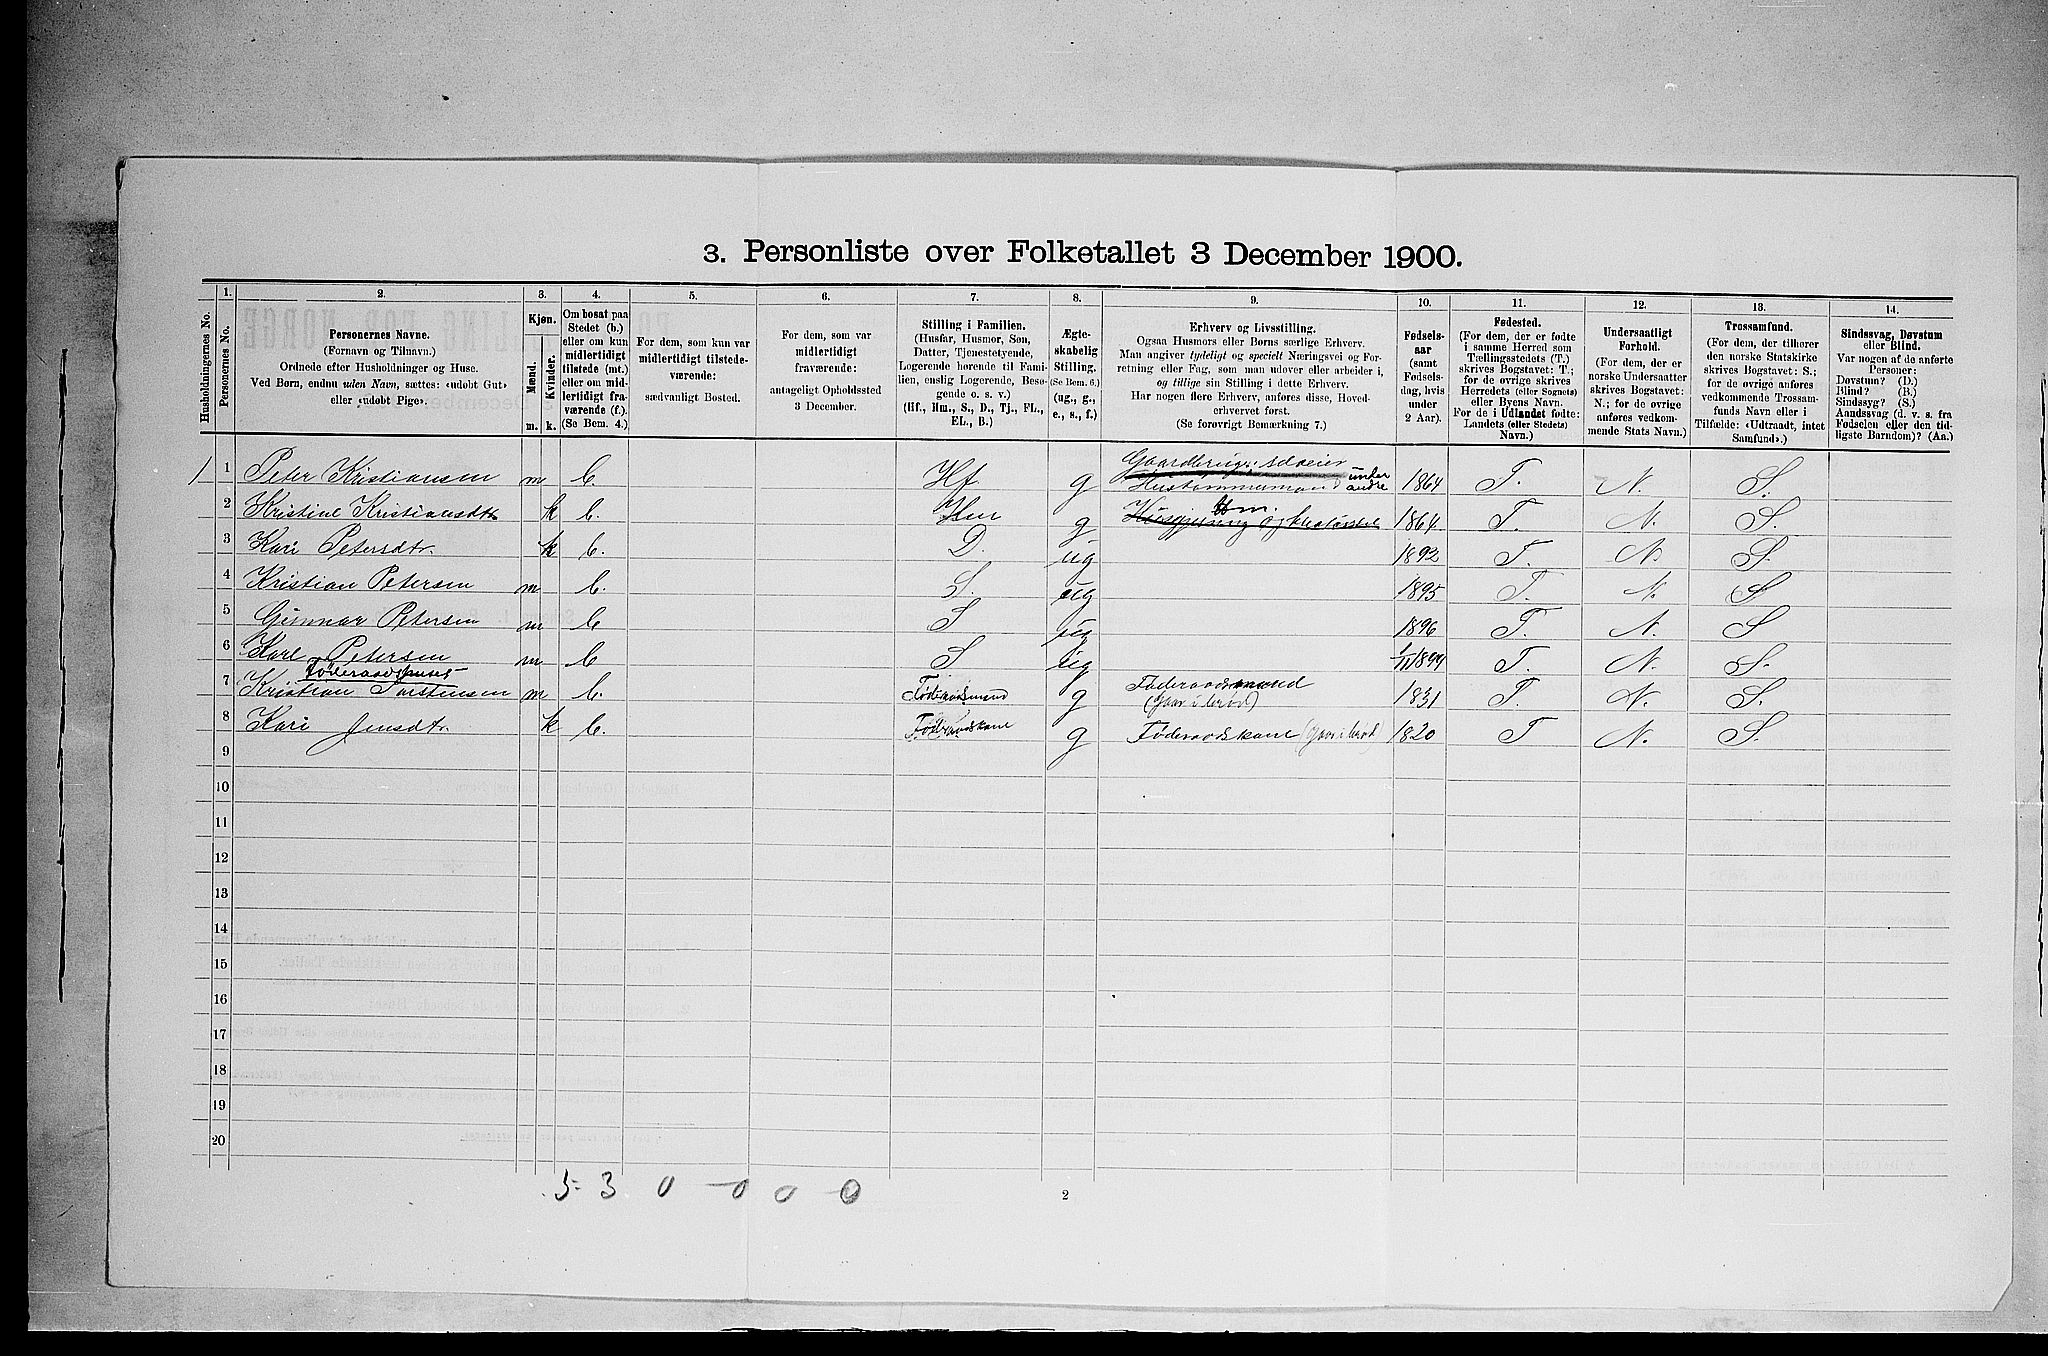 3. Personliste over Folketallet 3 December 1900.
Husholdningernes No.
1. Personernes No.
2.
Personernes Navne.
(Fornavn og Tilnavn.)
Ordnede efter Husholdninger og Huse.
Ved Børn, endnu uden Navn, sættes: «udøbt Gut»
eller «udøbt Pige».
3.
Kjøn.
Mænd.
Kvinder.
m. k.
4.
Om bosat paa
Stedet (b.)
eller om kun
midlertidigt
tilstede (mt.)
eller om mid-
lertidigt fra-
værende (f.).
(Se Bem. 4.)
5.
For dem, som kun var
midlertidigt tilstede-
værende:
sædvanligt Bosted.
6.
For dem, som var
midlertidigt
fraværende:
antageligt Opholdssted
3 December.
7.
Stilling i Familien.
(Husfar, Husmor, Søn,
Datter, Tjenestetyende,
Logerende hørende til Fami-
lien, enslig Logerende, Besø-
gende o. s. v.)
(Hf., Hm., S., D., Tj., FL.,
EL., B.)
8.
Ægte-
skabelig
Stilling.
(Se Bem. 6.)
(ug., g.,
e., s., f.)
9.
Erhverv og Livsstilling.
Ogsaa Husmors eller Børns særlige Erhverv.
Man angiver tydeligt og specielt Næringsvei og For-
retning eller Fag, som man udøver eller arbeider i,
og tillige sin Stilling i dette Erhverv.
Har nogen flere Erhverv, anføres disse, Hoved-
erhvervet først.
(Se forøvrigt Bemærkning 7.)
10.
Fødsels-
aar
(samt
Fødsels-
dag, hvis
under
2 Aar).
11.
Fødested.
(For dem, der er fødte
i samme Herred som
Tællingsstedets (T.)
skrives Bogstavet: T.;
for de øvrige skrives
Herredets (eller Sognets)
eller Byens Navn.
For de i Udlandet fødte:
Landets (eller Stedets)
Navn.)
12.
Undersaatligt
Forhold.
(For dem, der er
norske Undersaatter
skrives Bogstavet:
N.; for de øvrige
anføres vedkom-
mende Stats Navn.)
13.
Trossamfund.
(For dem, der tilhører
den norske Statskirke
skrives Bogstavet: S.;
for de øvrige anføres
vedkommende Trossam-
funds Navn eller i
Tilfælde: «Udtraadt, intet
Samfund».)
14.
Sindssvag, Døvstum
eller Blind.
Var nogen af de anførte
Personer:
Døvstum? (D.)
Blind? (B.)
Sindssyg? (S.)
Aandssvag (d. v. s. fra
Fødselen eller den tid-
ligste Barndom)? (Aa.)
1 1 Peter Kristiansen m b. Hf g Gaardbrug. selveier under andre 1864 T. N. S.
2 Kristine Kristiansdtr k b. Hm g Hm. 1864. T. N. S.
3 Kari Petersdtr. k b. D. ug 1892 T. N. S.
4 Kristian Petersen m b. S. ug 1895 T. N. S
5 Gunnar Petersen m b S ug 1896 T. N. S
6 Karl Petersen m b S ug 1/11 1899 T. N. S.
Føderaadshuset
7 Kristian Torstensen m b. Føderaadsmand g Føderaadsmand 1831 T. N. S.
8 Kari Jensdtr. k b. Føderaadskone g Føderaadskone 1820 T N. S.
9
10
11
12
13
14
15
16
17
18
19
20
5 - 3 0 - 0 0 - 0
2